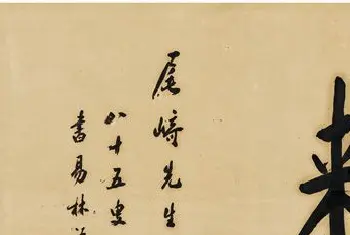 尾崎先生
八十五叟
書易林